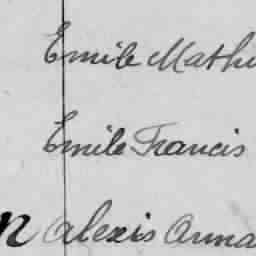 Emile Mathi
Emile Francis
n Alexis Anna